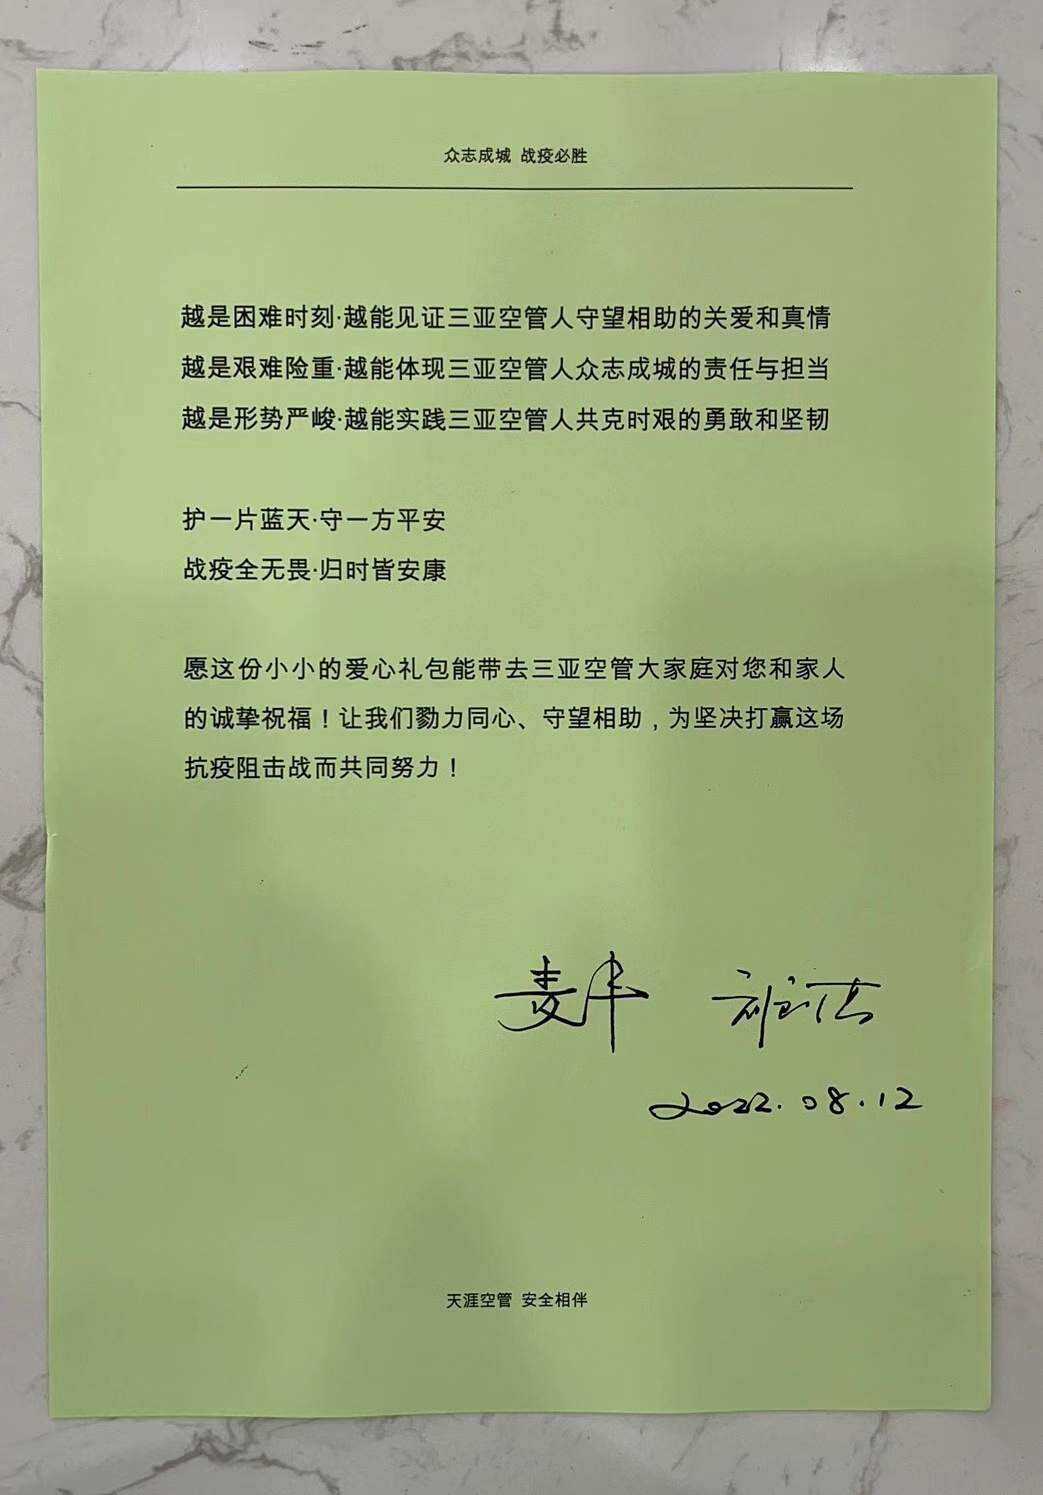 众志成城 战疫必胜
越是困难时刻·越能见证三亚空管人守望相助的关爱和真情
越是艰难险重·越能体现三亚空管人众志成城的责任与担当
越是形势严峻·越能实践三亚空管人共克时艰的勇敢和坚韧
护一片蓝天·守一方平安
战疫全无畏·归时皆安康
愿这份小小的爱心礼包能带去三亚空管大家庭对您和家人
的诚挚祝福！让我们勠力同心、守望相助，为坚决打赢这场
抗疫阻击战而共同努力！
2022.08.12
天涯空管 安全相伴